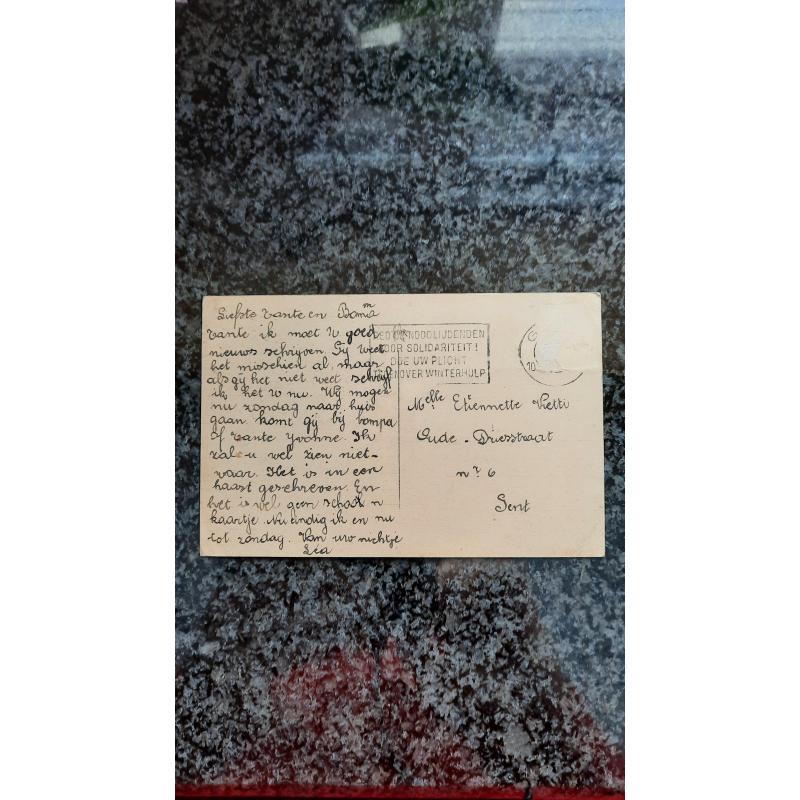 Liefste tante en Boma
tante ik moet U goed
nieuws schrijven. Gij weet
het misschien al, maar
als gij het niet weet schrijf
ik het U nu. Wij mogen
nu zondag naar huis
gaan komt gij bij bompa
of tante Yvonne. Ik
zal u wel zien niet-
waar. Het is in een
haast geschreven. En
het is wel geen schoon
kaartje. Nu eindig ik en nu
tot zondag. Van uw nichtje
Léa
NOODLIJDENDEN
DOOR SOLIDARITEIT!
DOE UW PLICHT
TEGENOVER WINTERHULP
10
Melle Etiennette Vetti
Oude-Driesstraat
nr 6
Gent